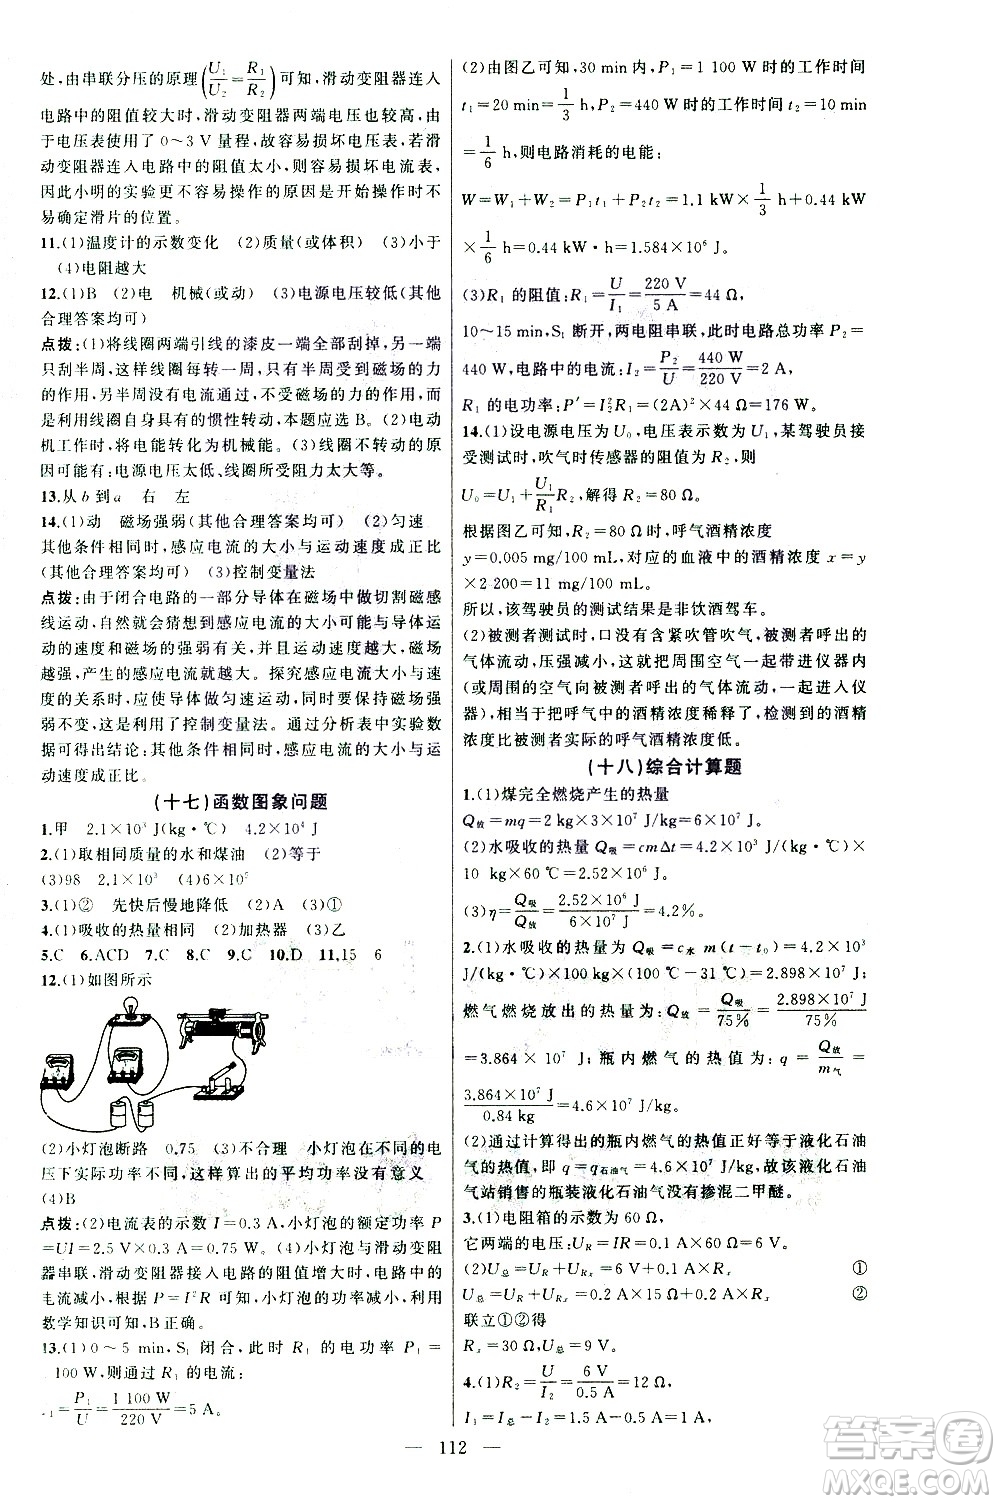 处,由串联分压的原理(U₁/U₂=R₁/R₂)可知,滑动变阻器连入
电路中的阻值较大时,滑动变阻器两端电压也较高,由
于电压表使用了 0～3 V 量程,故容易损坏电压表;若滑
动变阻器连入电路中的阻值太小,则容易损坏电流表,
因此小明的实验更不容易操作的原因是开始操作时不
易确定滑片的位置。
11.(1)温度计的示数变化 (2)质量(或体积) (3)小于
(4)电阻越大
12.(1)B (2)电 机械(或动) (3)电源电压较低(其他
合理答案均可)
点拨:(1)将线圈两端引线的漆皮一端全部刮掉,另一端
只刮半周,这样线圈每转一周,只有半周受到磁场的力
的作用,另半周没有电流通过,不受磁场的力的作用,从
而利用线圈自身具有的惯性转动,本题应选 B。(2)电动
机工作时,将电能转化为机械能。(3)线圈不转动的原
因可能有:电源电压太低、线圈所受阻力太大等。
13.从 b 到 a 右 左
14.(1)动 磁场强弱(其他合理答案均可) (2)匀速
其他条件相同时,感应电流的大小与运动速度成正比
(其他合理答案均可) (3)控制变量法
点拨:由于闭合电路的一部分导体在磁场中做切割磁感
线运动,这样就会猜想感应电流的大小可能与导体运
动的速度和磁场的强弱有关,并且运动速度越大、磁场
越强,产生的感应电流就越大。探究感应电流与运动速度
的关系时,应使导体做匀速运动,同时要保持磁场强
弱不变,这里利用了控制变量法。通过分析表中实验数
据可得出结论:其他条件相同时,感应电流的大小与运
动速度成正比。
(十七)函数图象问题
1.甲 2.1×10³ J/(kg·℃) 4.2×10⁴ J
2.(1)取相同质量的水和煤油 (2)等于
(3)98 2.1×10³ (4)6×10⁵
3.(1)② 先快后慢地降低 (2)A (3)增大
4.(1)吸收的热量相同 (2)加热器 (3)乙
5.C 6.ACD 7.C 8.C 9.C 10.D 11.15 6
12.(1)如图所示
(2)小灯泡断路 0.75 (3)不合理 小灯泡在不同的电
压下实际功率不同,这样算出的平均功率没有意义
(4)B
点拨:(2)电流表的示数 I=0.3 A,小灯泡的额定功率 P
=UI=2.5 V×0.3 A=0.75 W。(4)小灯泡与滑动变阻
器串联,滑动变阻器接入电路的阻值增大时,电路中的
电流减小,根据 P=I²R 可知,小灯泡的功率减小,利用
数学知识可知,B 正确。
13.(1)0～5 min,S₁ 闭合,此时 R₁ 的电功率 P₁=
100 W,则通过 R₁ 的电流:
=P₁/U=1 100 W/220 V=5 A。
(2)由图乙可知,30 min 内,P₁=1 100 W 时的工作时间
t₁=20 min=1/3 h,P₂=440 W 时的工作时间 t₂=10 min
=1/6 h,则电路消耗的电能:
W=W₁+W₂=P₁t₁+P₂t₂=1.1 kW×1/3 h+0.44 kW
×1/6 h=0.44 kW·h=1.584×10⁶ J。
(3)R₁ 的阻值:R₁=U/I₁=220 V/5 A=44 Ω,
10～15 min,S₁ 断开,两电阻串联,此时电路总功率 P₂=
440 W,电路中的电流:I₂=P₂/U=440 W/220 V=2 A,
R₁ 的电功率:P′=I₂²R₁=(2A)²×44 Ω=176 W。
14.(1)设电源电压为 U₀,电压表示数为 U₁,某驾驶员接
受测试时,吹气时传感器的阻值为 R₂,则
U₀=U₁+U₁/R₁R₂,解得 R₂=80 Ω。
根据图乙可知,R₂=80 Ω时,呼气酒精浓度
y=0.005 mg/100 mL,对应的血液中的酒精浓度 x=
y×2 200=11 mg/100 mL。
所以,该驾驶员的测试结果是非饮酒驾车。
(2)被测者测试时,口没有含紧吹管吹气,被测者呼出的
气体流动,压强减小,这样把周围空气一起带进仪器内
(或周围的空气向被测者呼出的气体流动,一起进入仪
器),这样相当于把呼气中的酒精浓度稀释了,测出酒精
浓度比被测者实际的呼气酒精浓度低。
(十八)综合计算题
1.(1)煤完全燃烧产生的热量
Q放=mq=2 kg×3×10⁷ J/kg=6×10⁷ J
(2)水吸收的热量 Q吸=cmΔt=4.2×10³J/(kg·℃)×
10 kg×60 ℃=2.52×10⁶ J
(3)η=Q吸/Q放=2.52×10⁶ J/6×10⁷ J=4.2%
2.(1)水吸收的热量为 Q吸=c水 m(t-t₀)=4.2×10³
J/(kg·℃)×100 kg×(100 ℃-31 ℃)=2.898×10⁷ J,
燃气燃烧放出的热量为 Q放=Q吸/75%=2.898×10⁷ J/75%
=3.864×10⁷ J;瓶内燃气的热值为:q=Q放/m气=
3.864×10⁷ J/0.84 kg=4.6×10⁷ J/kg。
(2)通过计算得出的瓶内燃气的热值正好等于液化石油
气的热值,即 q=q石油气=4.6×10⁷ J/kg,故该液化石油
气站销售的瓶装液化石油气没有掺混二甲醚。
3.(1)电阻箱的示数为 60 Ω,
它两端的电压:UR=IR=0.1 A×60 Ω=6 V
(2)U总=UR+URx=6 V+0.1 A×Rx ①
U总=UR+URx=0.2 A×15 Ω+0.2 A×Rx ②
联立①②得
Rx=30 Ω,U总=9 V。
4.(1)R₂=U/I₂=6 V/0.5 A=12 Ω
I₁=I总-I₂=1.5 A-0.5 A=1 A
— 112 —
答案圈
MXQE.COM